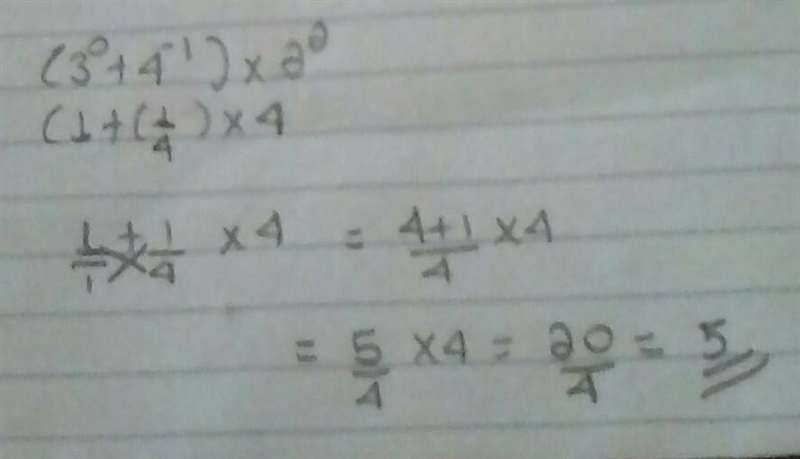 (3⁰+4⁻¹)×2²
(1+(1/4)×4
1/1+1/4 ×4 = (4+1)/4 ×4
= 5/4 ×4 = 20/4 = 5